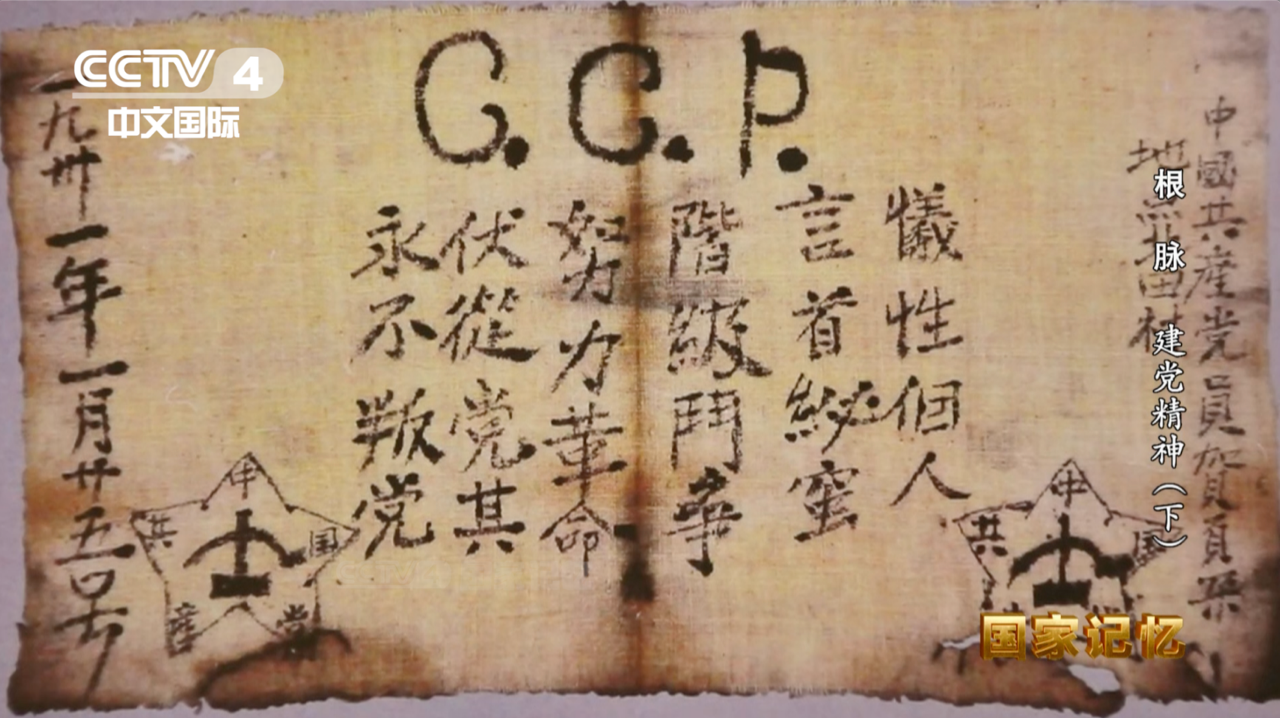 CCTV 4
中文国际
C.C.P.
中國共產党員賀頁朵
地點北田村
犧性個人
言首秘宻
階級鬥争
努力革命
伏從党其
永不叛党
一九卅一年一月廿五号
中国共產党
中国共
根 脉 建党精神（下）
国家记忆